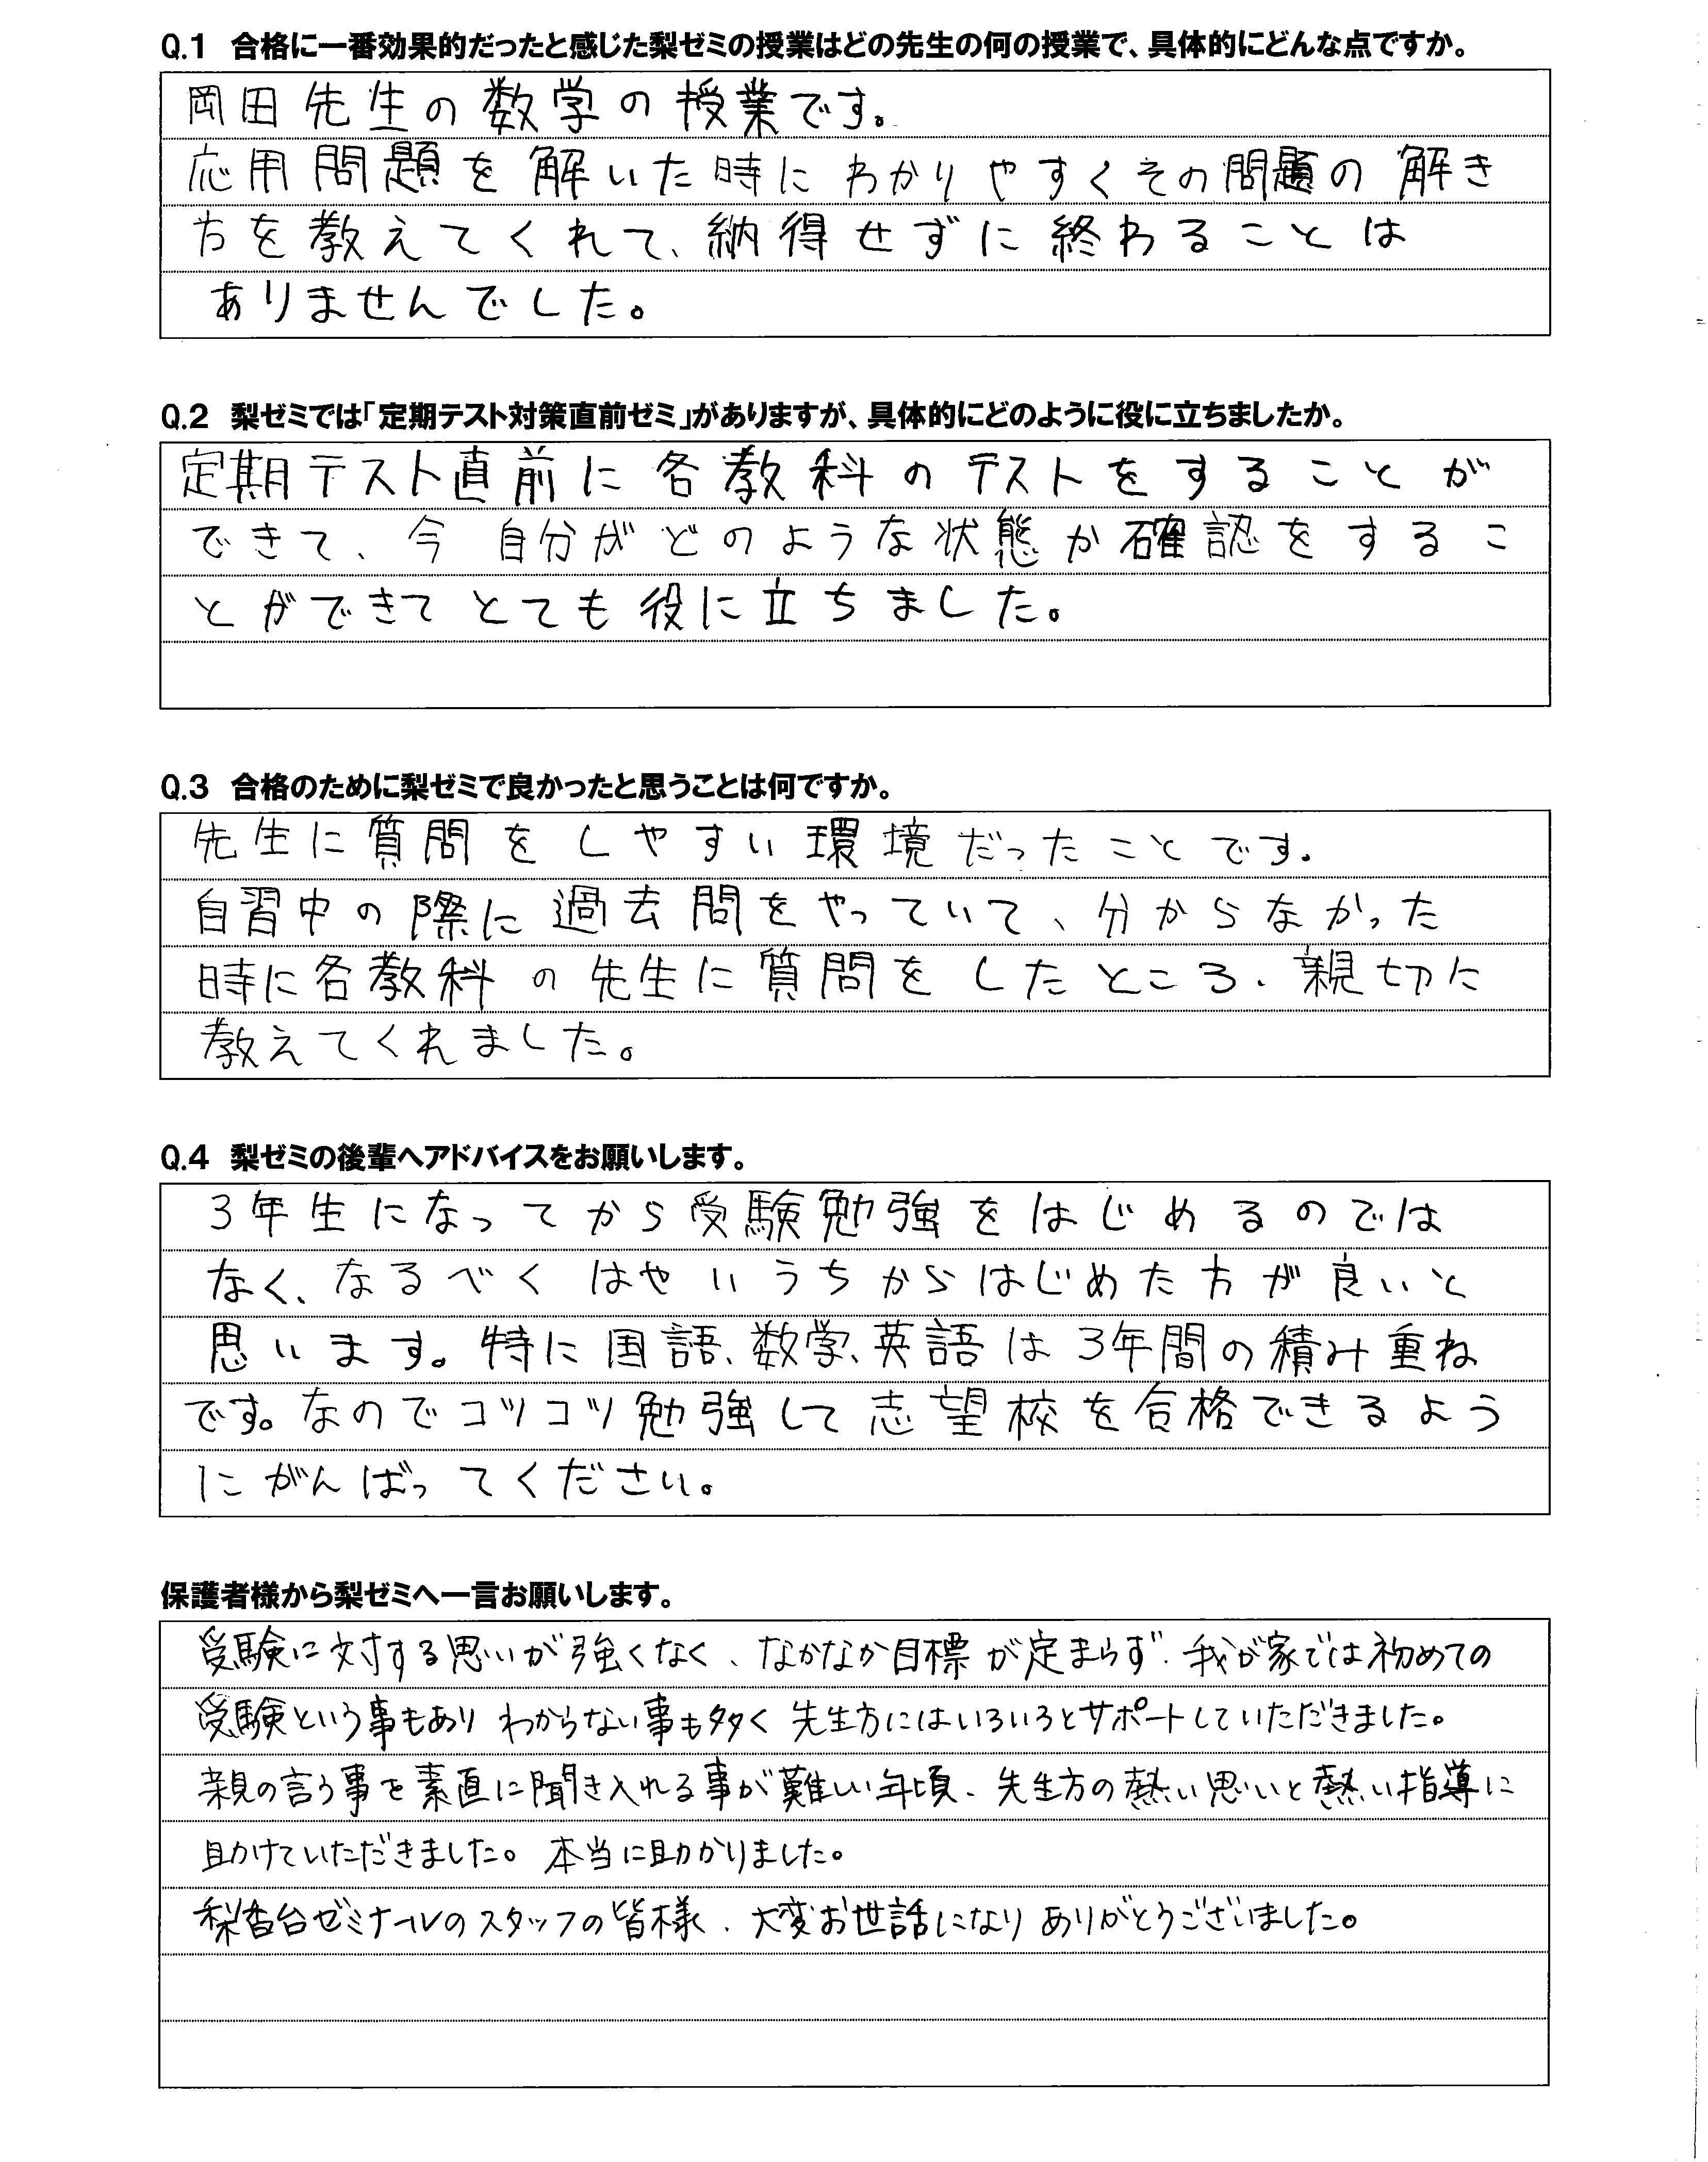 Q.1 合格に一番効果的だったと感じた梨ゼミの授業はどの先生の何の授業で、具体的にどんな点ですか。
岡田先生の数学の授業です。
応用問題を解いた時にわかりやすくその問題の解き
方を教えてくれて、納得せずに終わることは
ありませんでした。
Q.2 梨ゼミでは「定期テスト対策直前ゼミ」がありますが、具体的にどのように役に立ちましたか。
定期テスト直前に各教科のテストをすることが
できて、今自分がどのような状態か確認をするこ
とができてとても役に立ちました。
Q.3 合格のために梨ゼミで良かったと思うことは何ですか。
先生に質問をしやすい環境だったことです。
自習中の際に過去問をやっていて、分からなかった
時に各教科の先生に質問をしたところ、親切に
教えてくれました。
Q.4 梨ゼミの後輩へアドバイスをお願いします。
3年生になってから受験勉強をはじめるのでは
なく、なるべくはやいうちからはじめた方が良いと
思います。特に国語、数学、英語は3年間の積み重ね
です。なのでコツコツ勉強して志望校を合格できるよう
にがんばってください。
保護者様から梨ゼミへ一言お願いします。
受験に対する思いが強くなく、なかなか目標が定まらず、我が家では初めての
受験という事もありわからない事も多く先生方にはいろいろとサポートしていただきました。
親の言う事を素直に聞き入れる事が難しい年頃、先生方の熱い思いと熱い指導に
助けていただきました。本当に助かりました。
梨香台ゼミナールのスタッフの皆様、大変お世話になりありがとうございました。